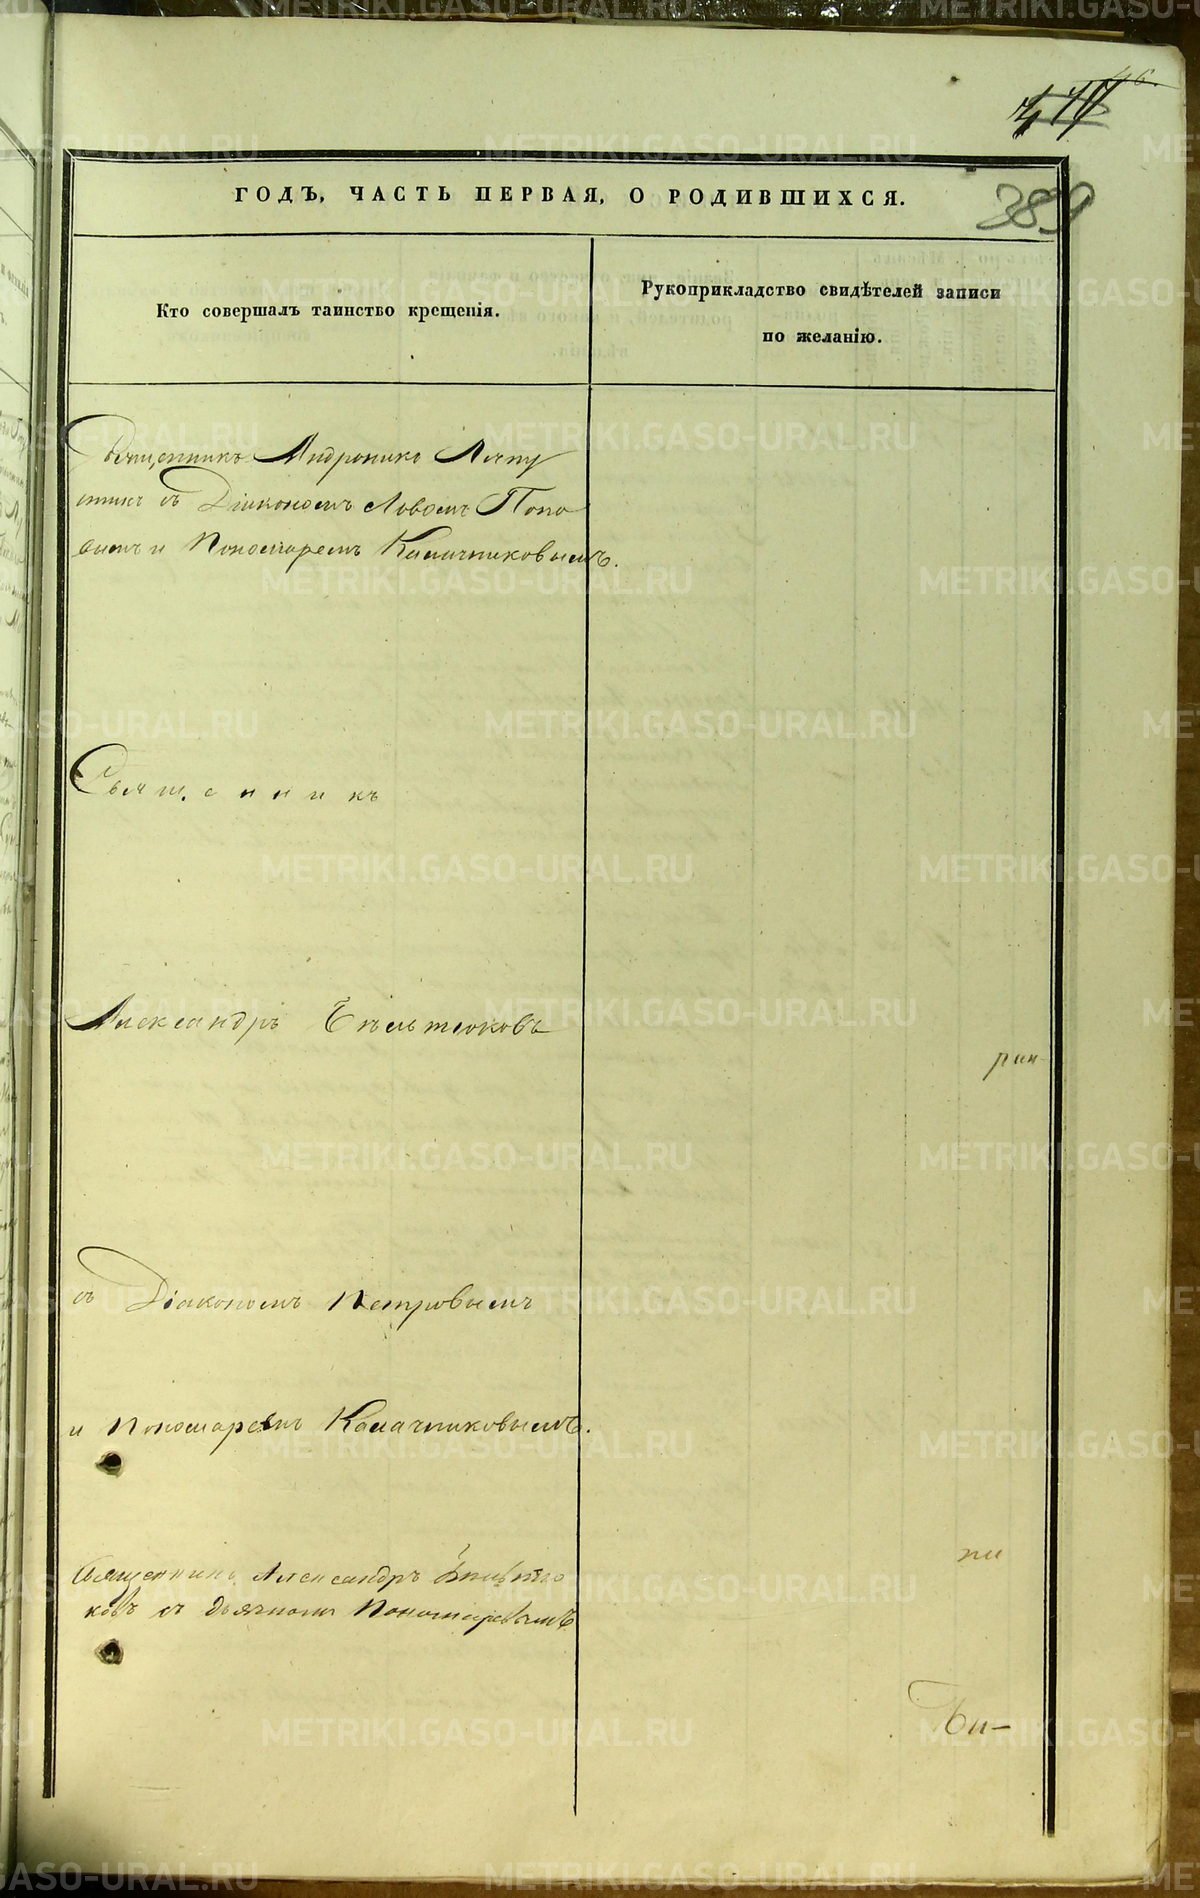 389
ГОДЪ, ЧАСТЬ ПЕРВАЯ, О РОДИВШИХСЯ.
Кто совершалъ таинство крещенія.
Рукоприкладство свидѣтелей записи
по желанію.
Священникъ Андроникъ Ляпу
стинъ съ Діакономъ Львомъ Попо
вымъ и Пономаремъ Калачниковымъ.
Священникъ
Александръ
рин-
съ Діакономъ Петровымъ
и Пономаремъ Калачниковымъ.
Священникъ Александръ
ковъ съ дьячкомъ Пономаревымъ
пи
Би-
METRIKI.GASO-URAL.RU